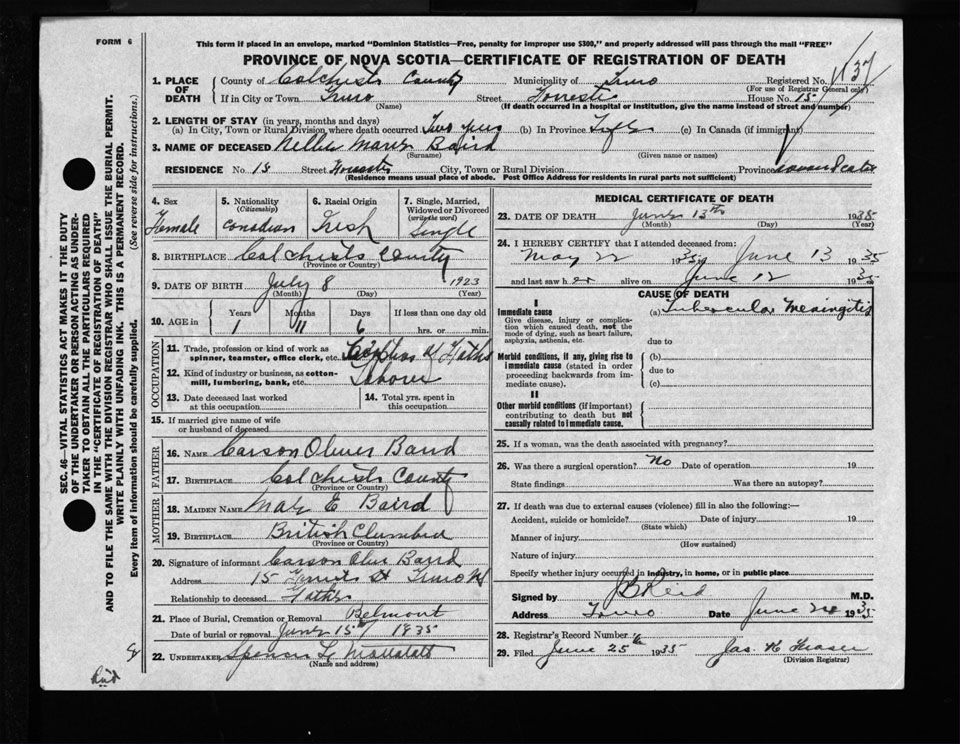 FORM 6
This form if placed in an envelope, marked "Dominion Statistics—Free, penalty for improper use $300," and properly addressed will pass through the mail "FREE"
PROVINCE OF NOVA SCOTIA—CERTIFICATE OF REGISTRATION OF DEATH
1. PLACE OF DEATH
County of Colchester County Municipality of Truro Registered No.
(For use of Registrar General only)
If in City or Town Truro Street House No. 15
(Name) (If death occurred in a hospital or institution, give the name instead of street and number)
2. LENGTH OF STAY (in years, months and days)
(a) In City, Town or Rural Division where death occurred (b) In Province Life (c) In Canada (if immigrant)
3. NAME OF DECEASED Nellie Marie Baird
(Surname) (Given name or names)
RESIDENCE No. 15 Street City, Town or Rural Division Province Nova Scotia
(Residence means usual place of abode. Post Office Address for residents in rural parts not sufficient)
4. Sex
Female
5. Nationality
(Citizenship)
Canadian
6. Racial Origin
Irish
7. Single, Married, Widowed or Divorced
(write the word)
Single
8. BIRTHPLACE Colchester County
(Province or Country)
9. DATE OF BIRTH July 8 1923
(Month) (Day) (Year)
10. AGE in Years Months Days If less than one day old
1 11 6 hrs. or min.
OCCUPATION
11. Trade, profession or kind of work as spinner, teamster, office clerk, etc.
12. Kind of industry or business, as cotton-mill, lumbering, bank, etc. Laborer
13. Date deceased last worked at this occupation
14. Total yrs. spent in this occupation
15. If married give name of wife or husband of deceased
FATHER
16. NAME Carson Oliver Baird
17. BIRTHPLACE Colchester County
(Province or Country)
MOTHER
18. MAIDEN NAME May E Baird
19. BIRTHPLACE British Clumbia
(Province or Country)
20. Signature of informant Carson Oliver Baird
Address 15 St Truro
Relationship to deceased Father
21. Place of Burial, Cremation or Removal Belmont
Date of burial or removal June 15 1935
22. UNDERTAKER
(Name and address)
MEDICAL CERTIFICATE OF DEATH
23. DATE OF DEATH June 13th 1935
(Month) (Day) (Year)
24. I HEREBY CERTIFY that I attended deceased from:
May 22 1935 to June 13 1935
and last saw h er alive on June 12 1935
CAUSE OF DEATH
I
Immediate cause (a) Tubercular Meningitis
Give disease, injury or complication which caused death, not the mode of dying, such as heart failure, asphyxia, asthenia, etc.
due to
Morbid conditions, if any, giving rise to immediate cause (stated in order proceeding backwards from immediate cause).
(b)
due to
(c)
II
Other morbid conditions (if important) contributing to death but not causally related to immediate cause.
25. If a woman, was the death associated with pregnancy?
26. Was there a surgical operation? No Date of operation 19
State findings Was there an autopsy?
27. If death was due to external causes (violence) fill in also the following:—
Accident, suicide or homicide? Date of injury 19
(State which)
Manner of injury
(How sustained)
Nature of injury
Specify whether injury occurred in industry, in home, or in public place
Signed by Reid M.D.
Address Truro Date June 24 1935
28. Registrar's Record Number
29. Filed June 25th 1935 Jas. H Fraser
(Division Registrar)
SEC. 46—VITAL STATISTICS ACT MAKES IT THE DUTY OF THE UNDERTAKER OR PERSON ACTING AS UNDERTAKER TO OBTAIN ALL THE PARTICULARS REQUIRED IN THE "CERTIFICATE OF REGISTRATION OF DEATH"
AND TO FILE THE SAME WITH THE DIVISION REGISTRAR WHO SHALL ISSUE THE BURIAL PERMIT.
WRITE PLAINLY WITH UNFADING INK. THIS IS A PERMANENT RECORD.
Every item of information should be carefully supplied. (See reverse side for instructions.)